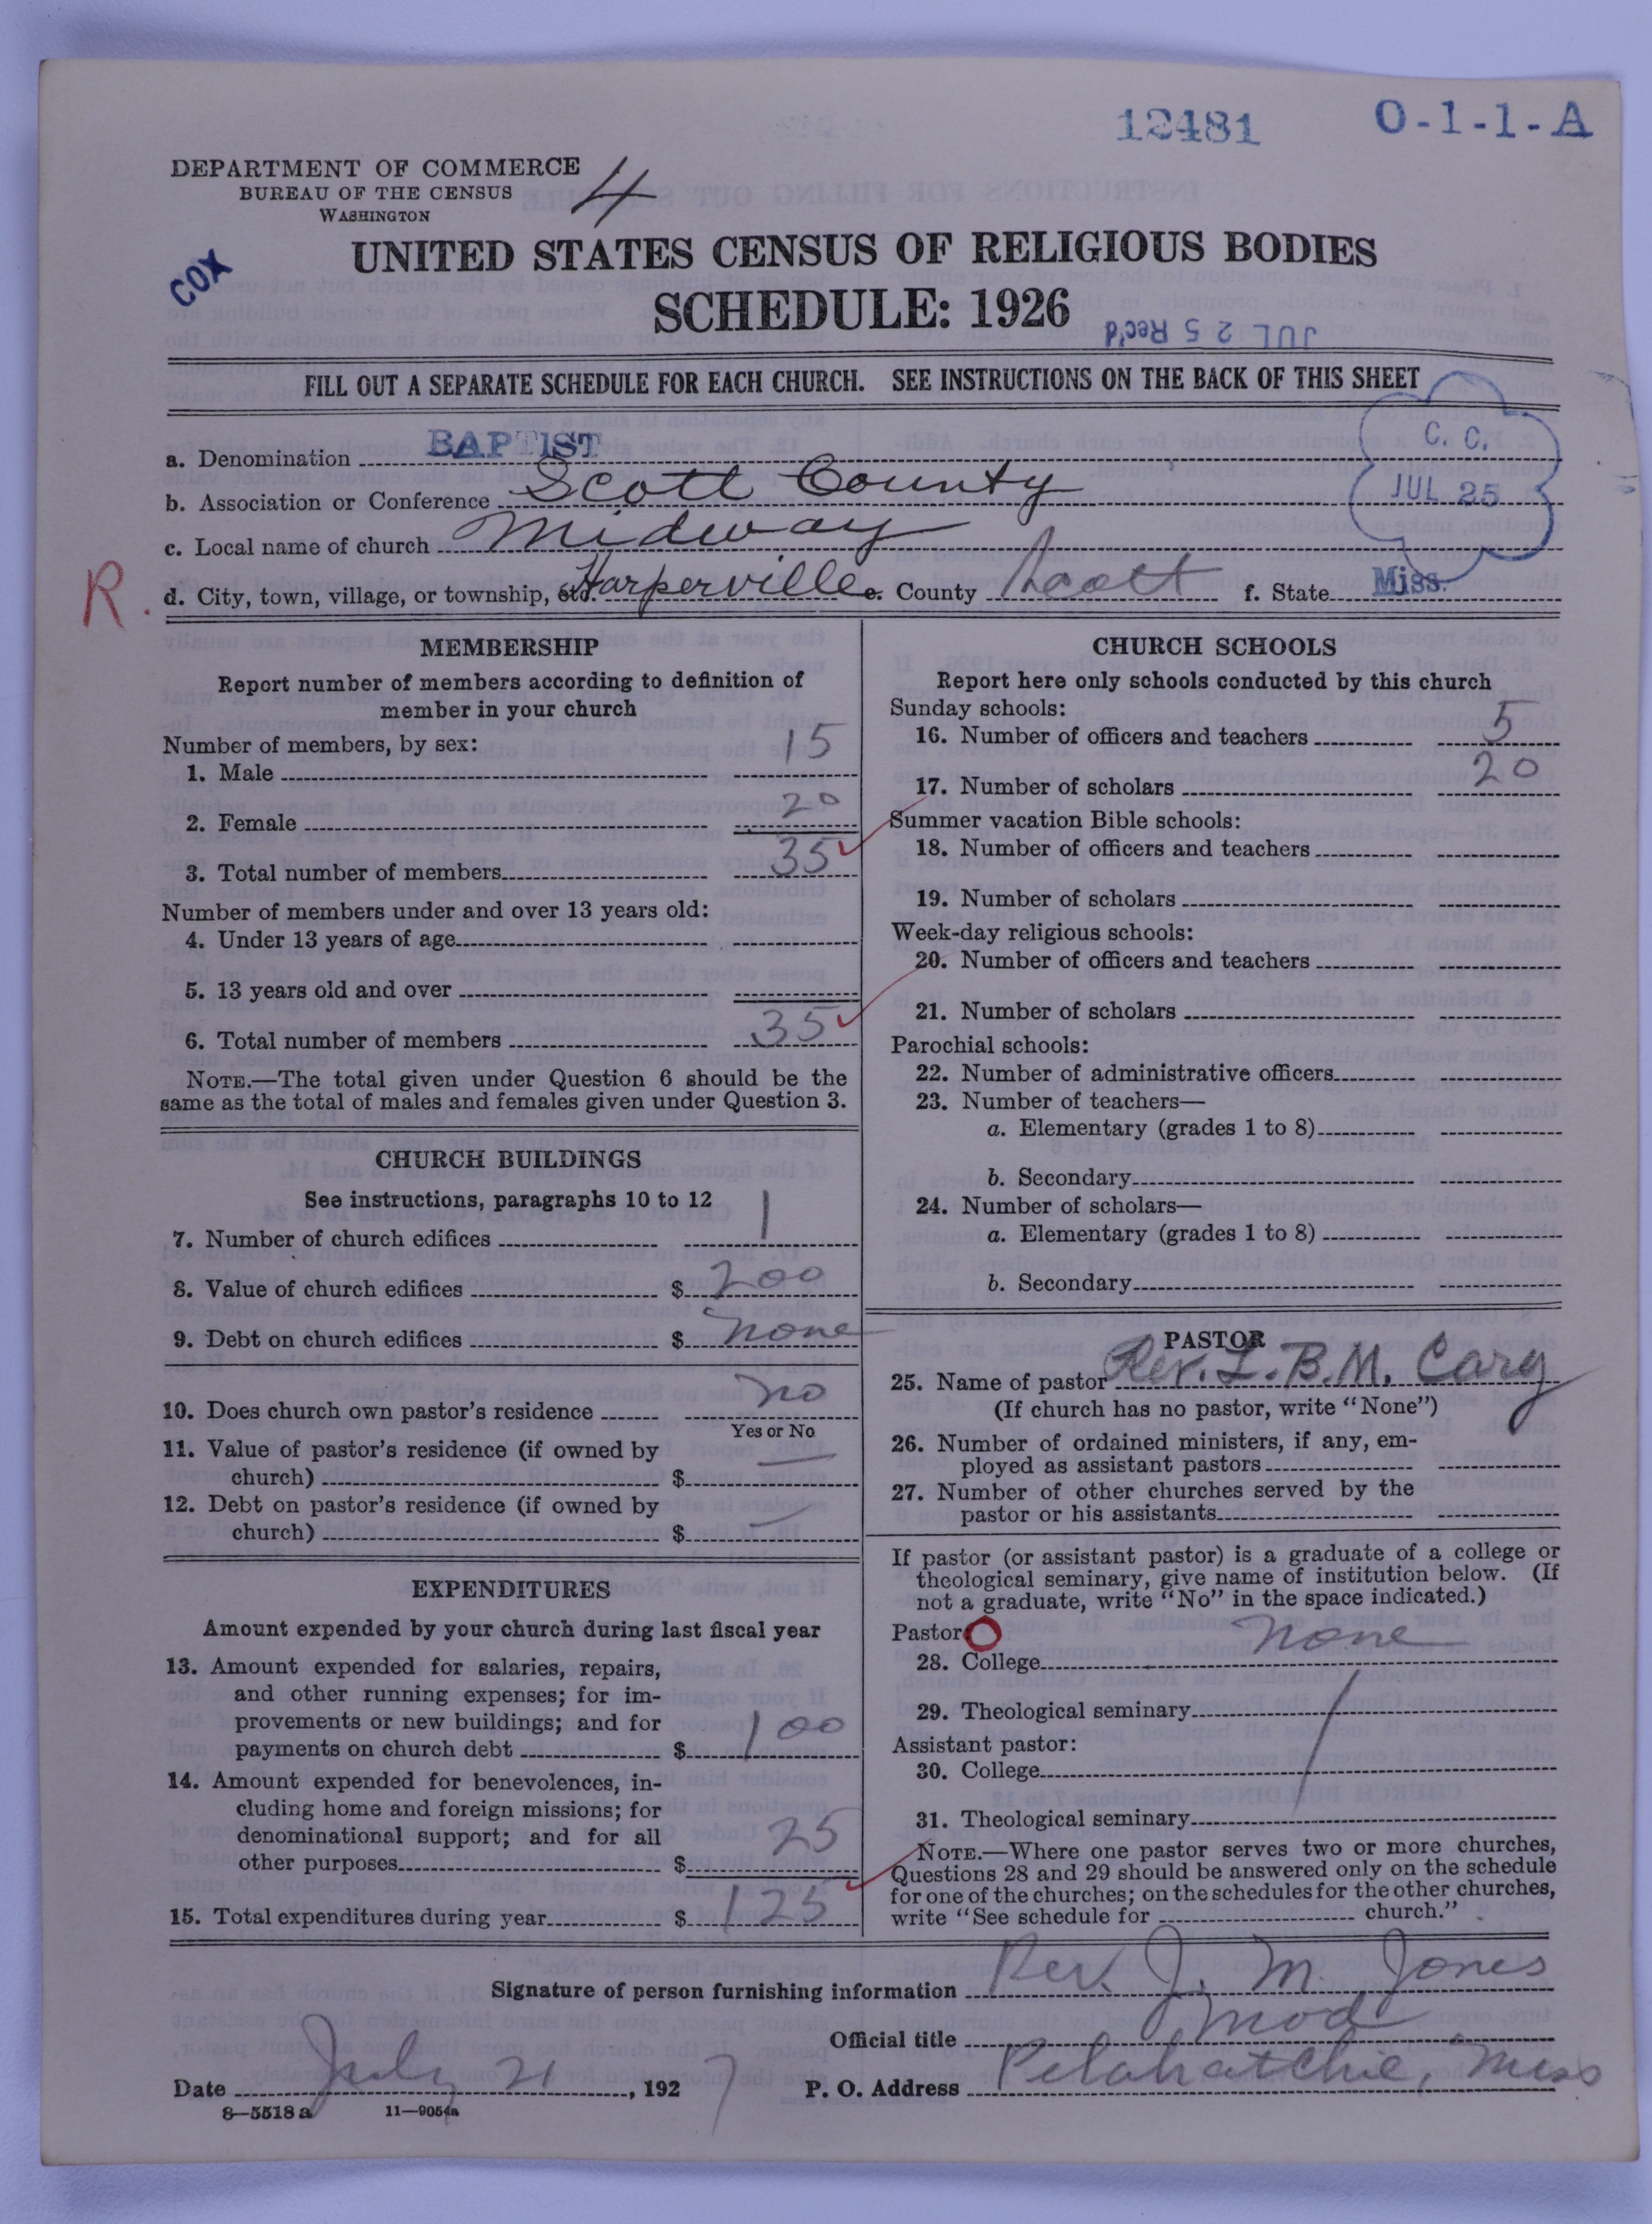 12481 O-1-1-A
DEPARTMENT OF COMMERCE
BUREAU OF THE CENSUS
WASHINGTON
4
COX
UNITED STATES CENSUS OF RELIGIOUS BODIES
SCHEDULE: 1926
JUL 25 Rec'd
FILL OUT A SEPARATE SCHEDULE FOR EACH CHURCH. SEE INSTRUCTIONS ON THE BACK OF THIS SHEET
C. C.
JUL 25
a. Denomination BAPTIST
b. Association or Conference Scott County
c. Local name of church Midway
R.
d. City, town, village, or township, etc. Harperville e. County Scott f. State Miss.
MEMBERSHIP
Report number of members according to definition of
member in your church
Number of members, by sex:
1. Male 15
2. Female 20
3. Total number of members 35
Number of members under and over 13 years old:
4. Under 13 years of age
5. 13 years old and over
6. Total number of members 35
NOTE.—The total given under Question 6 should be the
same as the total of males and females given under Question 3.
CHURCH BUILDINGS
See instructions, paragraphs 10 to 12
7. Number of church edifices 1
8. Value of church edifices $ 200
9. Debt on church edifices $ none
10. Does church own pastor's residence no
Yes or No
11. Value of pastor's residence (if owned by
church) $ —
12. Debt on pastor's residence (if owned by
church) $ —
EXPENDITURES
Amount expended by your church during last fiscal year
13. Amount expended for salaries, repairs,
and other running expenses; for im-
provements or new buildings; and for
payments on church debt $ 100
14. Amount expended for benevolences, in-
cluding home and foreign missions; for
denominational support; and for all
other purposes $ 25
15. Total expenditures during year $ 125
CHURCH SCHOOLS
Report here only schools conducted by this church
Sunday schools:
16. Number of officers and teachers 5
17. Number of scholars 20
Summer vacation Bible schools:
18. Number of officers and teachers
19. Number of scholars
Week-day religious schools:
20. Number of officers and teachers
21. Number of scholars
Parochial schools:
22. Number of administrative officers
23. Number of teachers—
a. Elementary (grades 1 to 8)
b. Secondary
24. Number of scholars—
a. Elementary (grades 1 to 8)
b. Secondary
PASTOR
25. Name of pastor Rev. L. B. M. Cary
(If church has no pastor, write "None")
26. Number of ordained ministers, if any, em-
ployed as assistant pastors
27. Number of other churches served by the
pastor or his assistants
If pastor (or assistant pastor) is a graduate of a college or
theological seminary, give name of institution below. (If
not a graduate, write "No" in the space indicated.)
Pastor:
28. College none
29. Theological seminary
Assistant pastor:
30. College
31. Theological seminary
NOTE.—Where one pastor serves two or more churches,
Questions 28 and 29 should be answered only on the schedule
for one of the churches; on the schedules for the other churches,
write "See schedule for church."
Signature of person furnishing information Rev. J. M. Jones
Official title Mod
Date July 21, 1927 P. O. Address Pelahatchie, Miss
8—5518 a 11—9054a